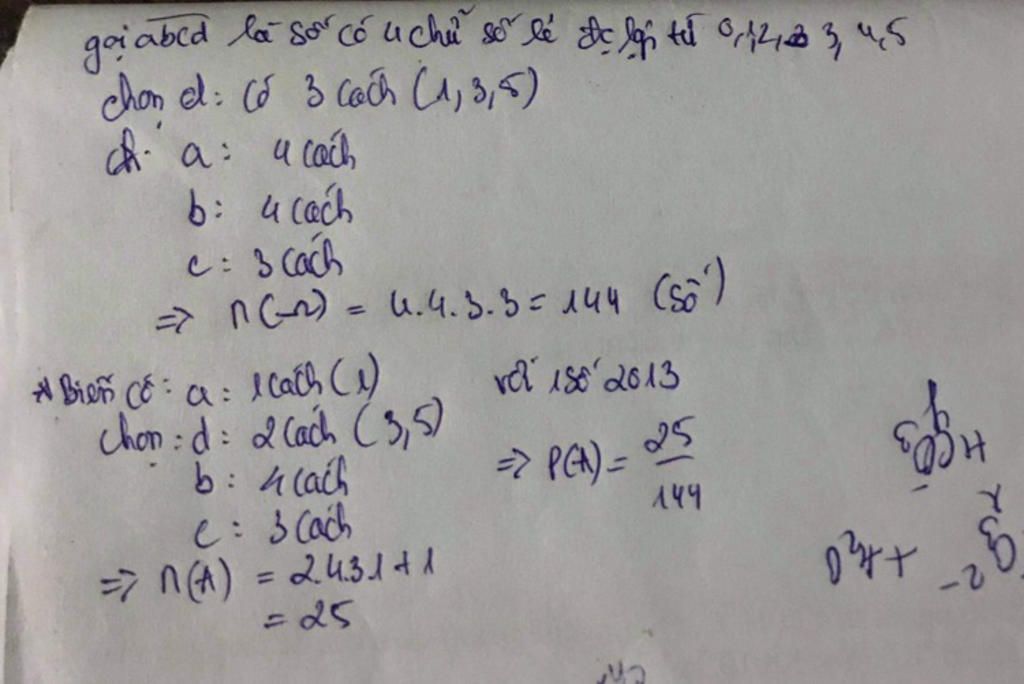 gọi abcd là số có 4 chữ số lẻ đc lập từ 0,1,2, 3, 4,5
chọn d: có 3 cách (1,3,5)
ch. a: 4 cách
b: 4 cách
c: 3 cách
=> n(Ω) = 4.4.3.3 = 144 (số)
* Biến cố: a: 1 cách (1)
chọn: d: 2 cách (3,5)
b: 4 cách
c: 3 cách
=> n(A) = 2.4.3.1 + 1
= 25
với 1 số 2013
=> P(A) = 25/144
HCO3-
+ H2O